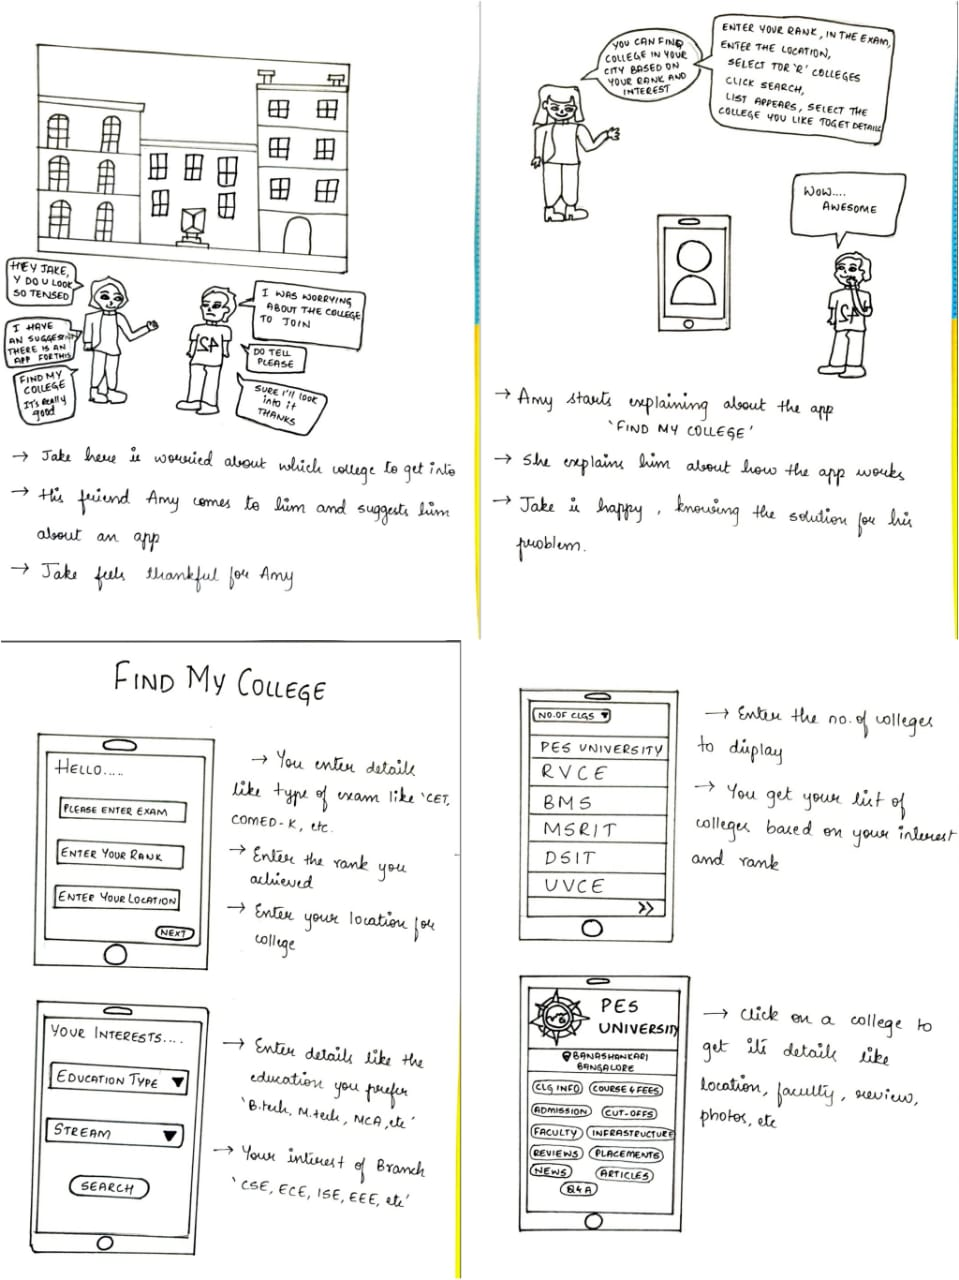 HEY JAKE,
Y DO U LOOK
SO TENSED
I WAS WORRYING
ABOUT THE COLLEGE
TO JOIN
I HAVE
AN SUGGESTION
THERE IS AN
APP FOR THIS
DO TELL
PLEASE
FIND MY
COLLEGE
IT'S REALLY
good
SURE I'll LOOK
into it
THANKS
42
→ Jake here is worried about which college to get into
→ His friend Amy comes to him and suggests him
about an app
→ Jake feels thankful for Amy
YOU CAN FIND
COLLEGE IN YOUR
CITY BASED ON
YOUR RANK AND
INTEREST
ENTER YOUR RANK, IN THE EXAM,
ENTER THE LOCATION,
SELECT TOP 'R' COLLEGES
CLICK SEARCH,
LIST APPEARS, SELECT THE
COLLEGE YOU LIKE TO GET DETAILS
WOW....
AWESOME
42
→ Amy starts explaining about the app
'FIND MY COLLEGE'
→ She explains him about how the app works
→ Jake is happy, knowing the solution for his
problem.
FIND MY COLLEGE
HELLO.....
PLEASE ENTER EXAM
ENTER YOUR RANK
ENTER YOUR LOCATION
NEXT
→ You enter details
like type of exam like 'CET,
COMED-K, etc.
→ Enter the rank you
achieved
→ Enter your location for
college
YOUR INTERESTS....
EDUCATION TYPE ▼
STREAM ▼
SEARCH
→ Enter details like the
education you prefer
'B.tech, M.tech, MCA, etc'
→ Your interest of Branch
'CSE, ECE, ISE, EEE, etc'
NO.OF CLGS ▼
PES UNIVERSITY
RVCE
BMS
MSRIT
DSIT
UVCE
>>
→ Enter the no. of colleges
to display
→ You get your list of
colleges based on your interest
and rank
PES
UNIVERSITY
BANASHANKARI
BANGALORE
CLG INFO COURSE & FEES
ADMISSION CUT-OFFS
FACULTY INFRASTRUCTURE
REVIEWS PLACEMENTS
NEWS ARTICLES
Q&A
→ Click on a college to
get its details like
location, faculty, review,
photos, etc